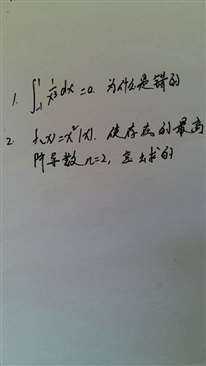 1. ∫₋₁¹ 1/x³ dx = 0. 为什么是错的
2. f(x)=x²|x|. 使存在的最高
阶导数 n=2, 怎么求的